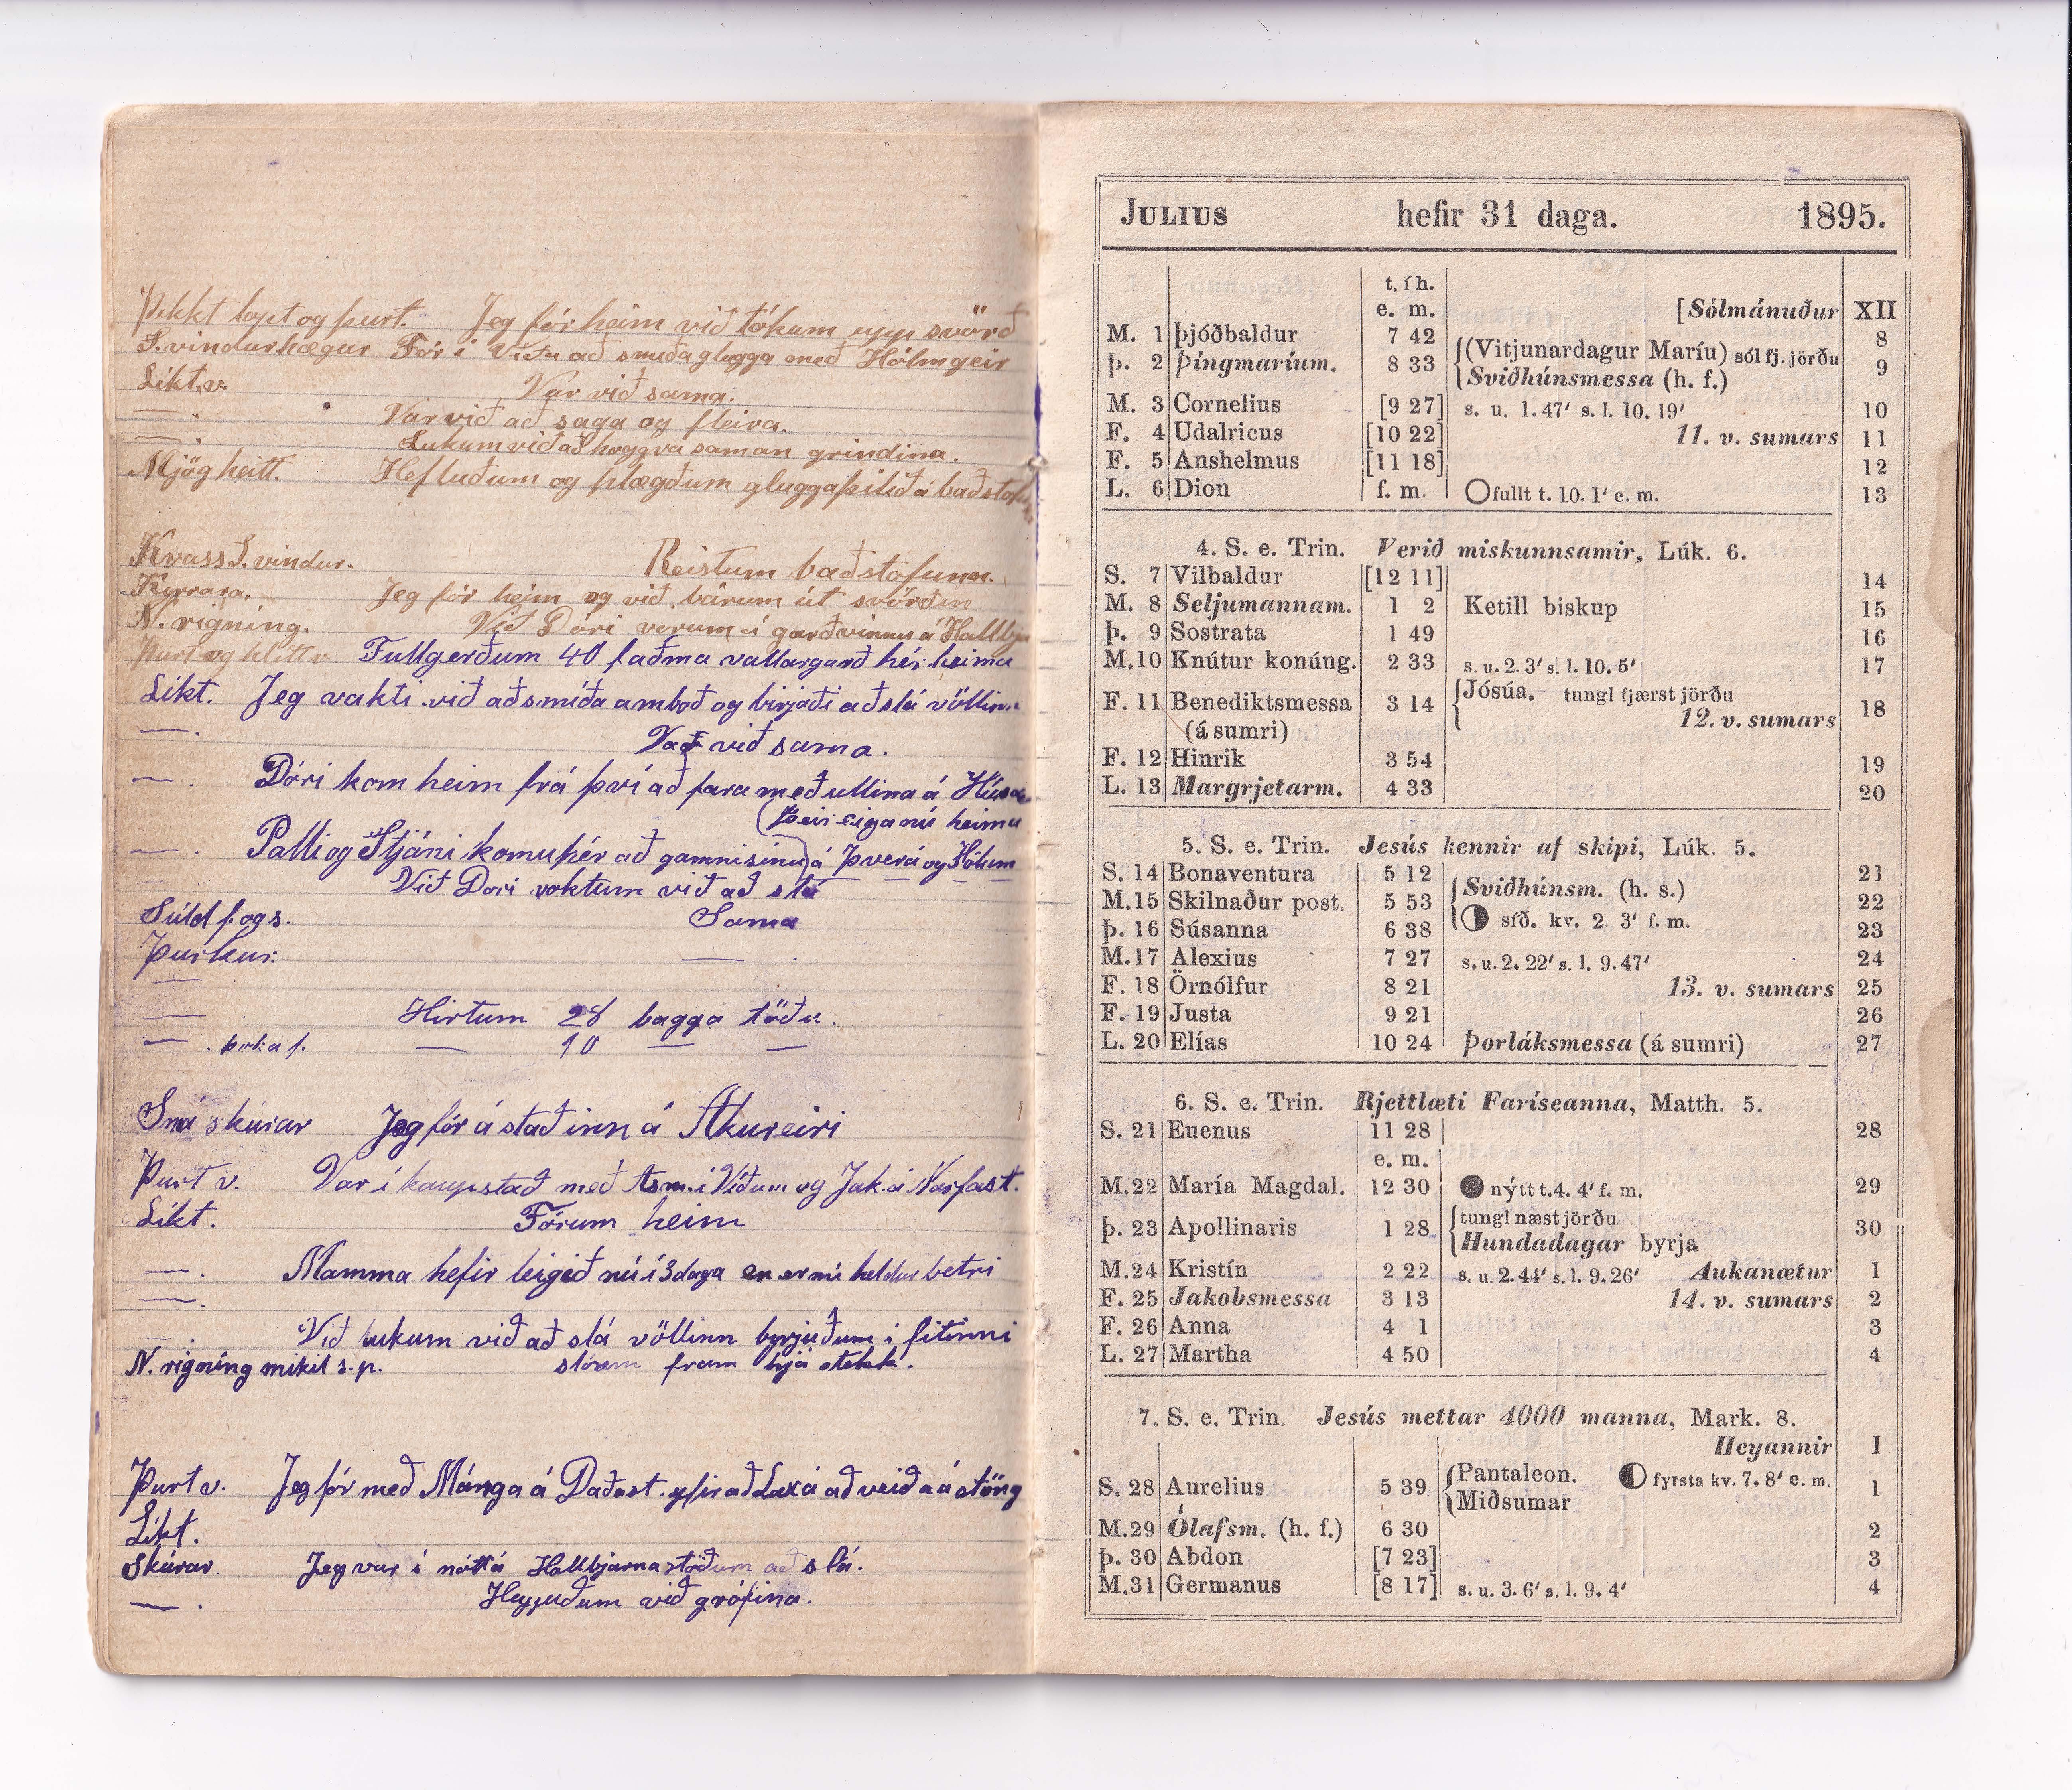 Þykkt lopt og þurt. Jeg fór heim við tókum upp svörð
S. vindur hægur Fór í Víðu að smíða glugga með Hólmgeir
Líkt v. Var við sama.
— . Var við að saga og fleira.
— . Lukum við að höggva saman grindina.
Mjög heitt. Hefluðum og plægðum gluggaþilið á baðstofu
Kvass S. vindur. Reistum baðstofuna.
Kyrrara. Jeg fór heim og við bárum út svörðin
N. rigning. Við Dóri vorum í garðvinnu á Hallbj
Þurt og hlítt v Fullgerðum 40 faðma vallargarð hér heima
Líkt. Jeg vakti við að smíða amboð og birjaði að slá völlinn
— . Var við sama.
— Dóri kom heim frá því að fara með ullina á Húsa
(Þeir eiga nú heima
— . Palli og Stjáni komu hér að gamni sínu) á Þverá og Hólum
Við Dori voktum við að slá
Súld f. og s. Sama
Þurkur. —
—
— Hirtum 28 bagga töðu.
— . þoka f. — 10 — —
Smá skúrar Jeg fór á stað inn á Akureiri
Þurt v. Var í kaupstað með Asm. í Víðum og Jak. á Narfast.
Líkt. Fórum heim
— . Mamma hefir leigið nú í 3 daga en er nú heldur betri
— .
— . Við lukum við að slá völlinn byrjuðum í fitinni
N. rigning mikil s. p. slóum fram hjá stekk.
Þurt v. Jeg fór með Mánga á Daðast. yfir að Laxá að veiða á stöng
Líkt.
Skúrar Jeg var í nótt á Hallbjarnastöðum að slá.
— . Heyjuðum við grófina.
JULIUS hefir 31 daga. 1895.
t. í h.
e. m. [Sólmánuður XII
M. 1 Þjóðbaldur 7 42 8
Þ. 2 Þíngmaríum. 8 33 {(Vitjunardagur Maríu) sól fj. jörðu 9
Sviðhúnsmessa (h. f.)
M. 3 Cornelius [9 27] s. u. 1. 47′ s. l. 10. 19′ 10
F. 4 Udalricus [10 22] 11. v. sumars 11
F. 5 Anshelmus [11 18] 12
L. 6 Dion f. m. ○fullt t. 10. 1′ e. m. 13
4. S. e. Trin. Verið miskunnsamir, Lúk. 6.
S. 7 Vilbaldur [12 11] 14
M. 8 Seljumannam. 1 2 Ketill biskup 15
Þ. 9 Sostrata 1 49 16
M. 10 Knútur konúng. 2 33 s. u. 2. 3′ s. l. 10. 5′ 17
F. 11 Benediktsmessa 3 14 {Jósúa. tungl fjærst jörðu 18
(á sumri) 12. v. sumars
F. 12 Hinrik 3 54 19
L. 13 Margrjetarm. 4 33 20
5. S. e. Trin. Jesús kennir af skipi, Lúk. 5.
S. 14 Bonaventura 5 12 21
{Sviðhúnsm. (h. s.)
M. 15 Skilnaður post. 5 53 22
◑ síð. kv. 2. 3′ f. m.
Þ. 16 Súsanna 6 38 23
M. 17 Alexius 7 27 s. u. 2. 22′ s. l. 9. 47′ 24
F. 18 Örnólfur 8 21 13. v. sumars 25
F. 19 Justa 9 21 26
L. 20 Elías 10 24 Þorláksmessa (á sumri) 27
6. S. e. Trin. Rjettlæti Faríseanna, Matth. 5.
S. 21 Euenus 11 28 28
e. m.
M. 22 María Magdal. 12 30 ● nýtt t. 4. 4′ f. m. 29
{tungl næst jörðu
Þ. 23 Apollinaris 1 28 30
Hundadagar byrja
M. 24 Kristín 2 22 s. u. 2. 44′ s. l. 9. 26′ Aukanætur 1
F. 25 Jakobsmessa 3 13 14. v. sumars 2
F. 26 Anna 4 1 3
L. 27 Martha 4 50 4
7. S. e. Trin. Jesús mettar 4000 manna, Mark. 8.
Heyannir I
S. 28 Aurelius 5 39 {Pantaleon. ◐ fyrsta kv. 7. 8′ e. m. 1
Miðsumar
M. 29 Ólafsm. (h. f.) 6 30 2
Þ. 30 Abdon [7 23] 3
M. 31 Germanus [8 17] s. u. 3. 6′ s. l. 9. 4′ 4